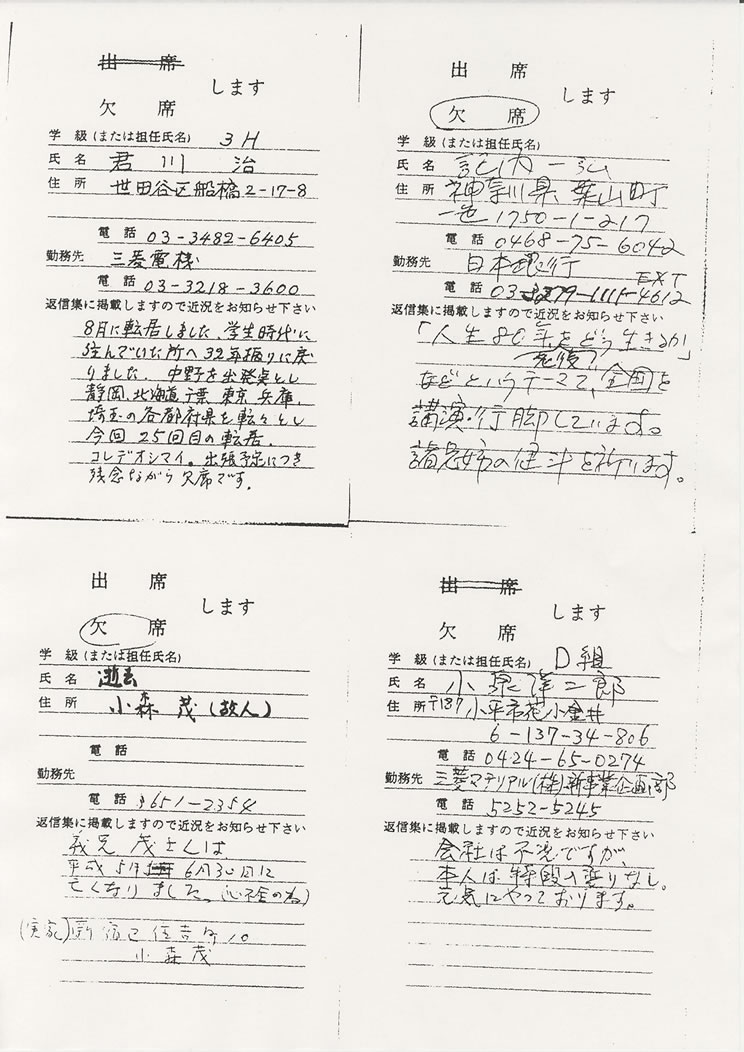 出席
します
欠席
学級(または担任氏名) 3H
氏名 君川 治
住所 世田谷区船橋2-17-8
電話 03-3482-6405
勤務先 三菱電機
電話 03-3218-3600
返信集に掲載しますので近況をお知らせ下さい
8月に転居しました。学生時代に
住んでいた所へ32年振りに戻
りました。中野を出発点とし
静岡、北海道、千葉、東京、兵庫、
埼玉の各都府県を転々とし
今回25回目の転居。
コレデオシマイ。出張予定につき
残念ながら欠席です。
出席
します
欠席
学級(または担任氏名)
氏名 記内一弘
住所 神奈川県葉山町
一色1750-1-217
電話 0468-75-6042
勤務先 日本銀行
EXT
電話 03-3279-1111-4612
返信集に掲載しますので近況をお知らせ下さい
「人生80年をどう生きるか」
などというテーマで、全国を
講演・行脚しています。
諸兄姉の健斗を祈ります。
出席
します
欠席
学級(または担任氏名)
氏名 逝去
住所 小森 茂(故人)
電話
勤務先
電話 3651-2354
返信集に掲載しますので近況をお知らせ下さい
義兄 茂さんは
平成5年6月30日に
亡くなりました。(心不全の為)
(実家)新宿区住吉町10
小森茂
出席
します
欠席
学級(または担任氏名) D組
氏名 小泉洋二郎
住所 〒187 小平市花小金井
6-137-34-806
電話 0424-65-0274
勤務先 三菱マテリアル(株)新事業企画部
電話 5252-5245
返信集に掲載しますので近況をお知らせ下さい
会社は不況ですが、
本人は特段の変りなし。
元気にやっております。